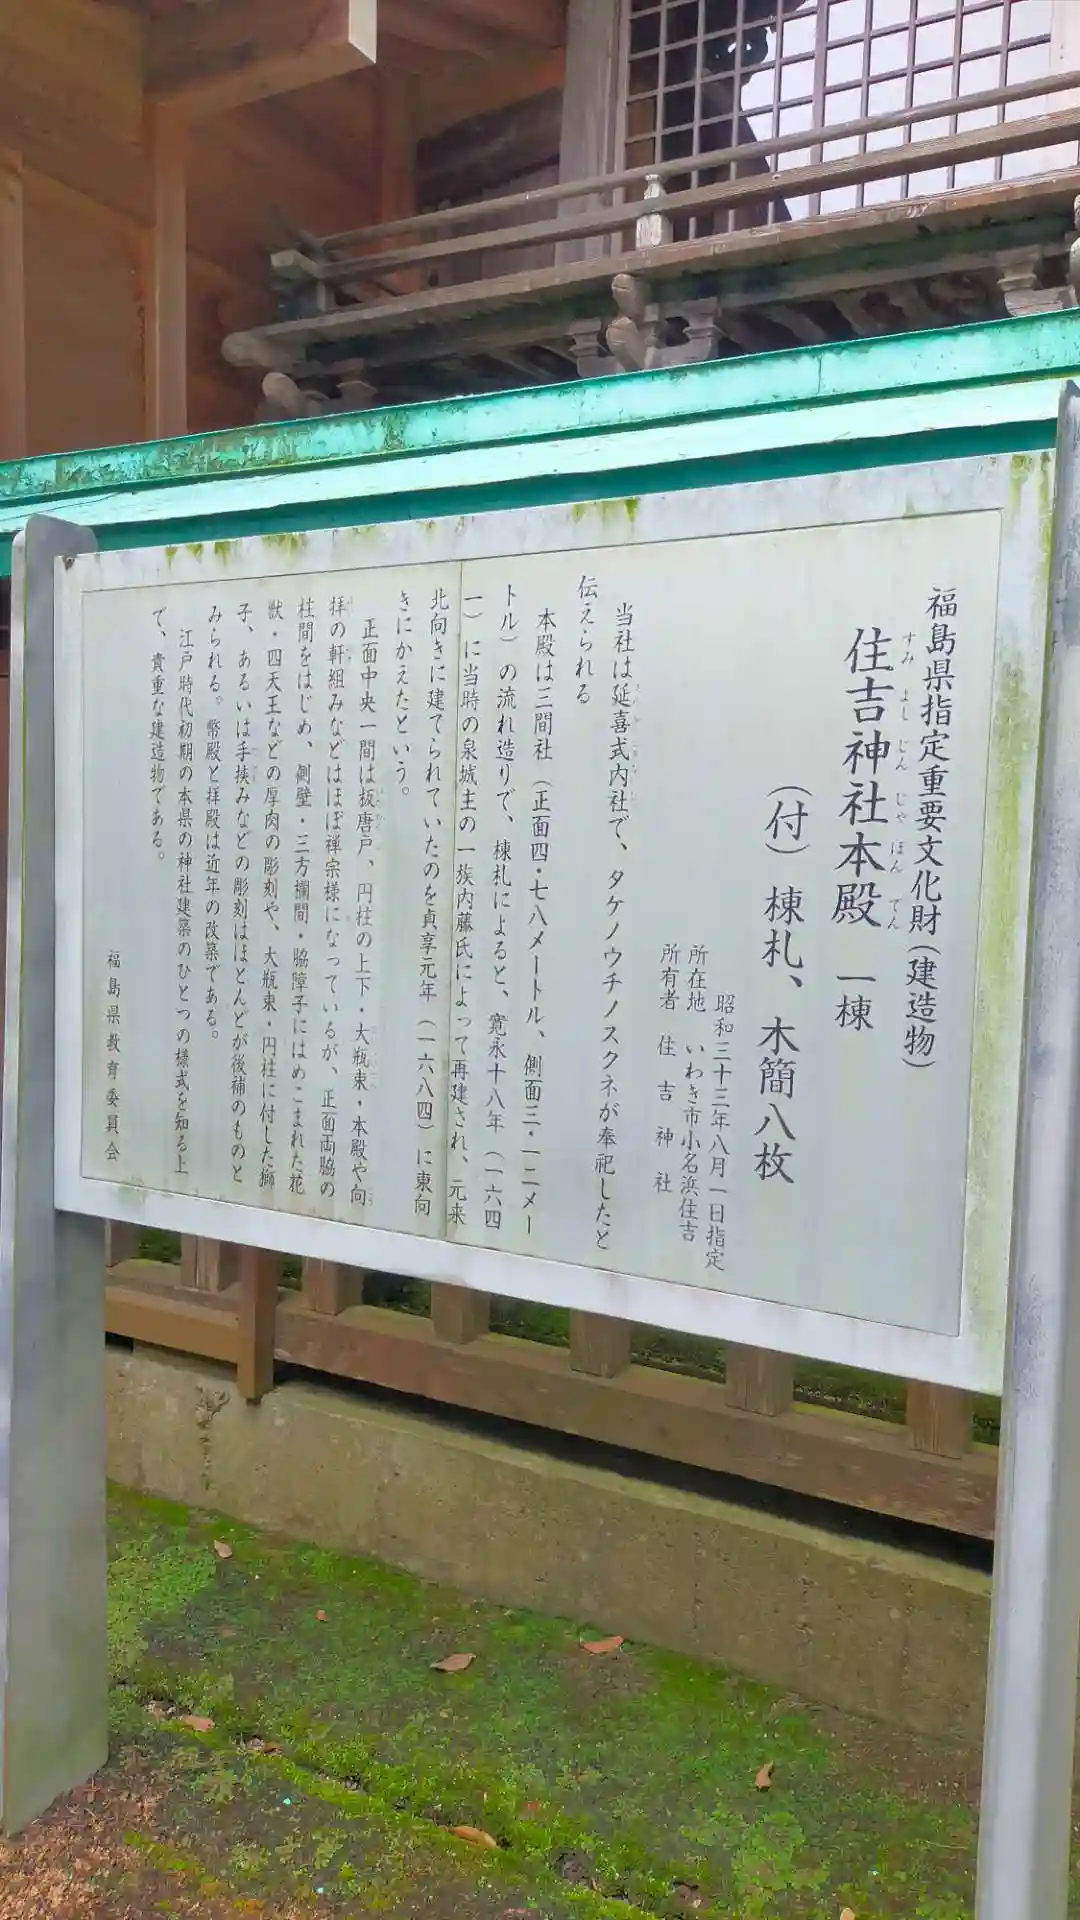 福島県指定重要文化財(建造物)
住吉神社本殿 一棟
すみ よし じん じゃ ほん でん
(付)棟札、木簡八枚
昭和三十三年八月一日指定
所在地 いわき市小名浜住吉
所有者 住吉神社
当社は延喜式内社で、タケノウチノスクネが奉祀したと
伝えられる
本殿は三間社(正面四・七八メートル、側面三・一二メー
トル)の流れ造りで、棟札によると、寛永十八年(一六四
一)に当時の泉城主の一族内藤氏によって再建され、元来
北向きに建てられていたのを貞享元年(一六八四)に東向
きにかえたという。
正面中央一間は扱唐戸、円柱の上下・大瓶束・本殿や向
拝の軒組みなどはほぼ禅宗様になっているが、正面両脇の
柱間をはじめ、側壁・三方欄間・脇障子にはめこまれた花
獣・四天王などの厚肉の彫刻や、大瓶束・円柱に付した獅
子、あるいは手挟みなどの彫刻はほとんどが後補のものと
みられる。幣殿と拝殿は近年の改築である。
江戸時代初期の本県の神社建築のひとつの様式を知る上
で、貴重な建造物である。
福島県教育委員会